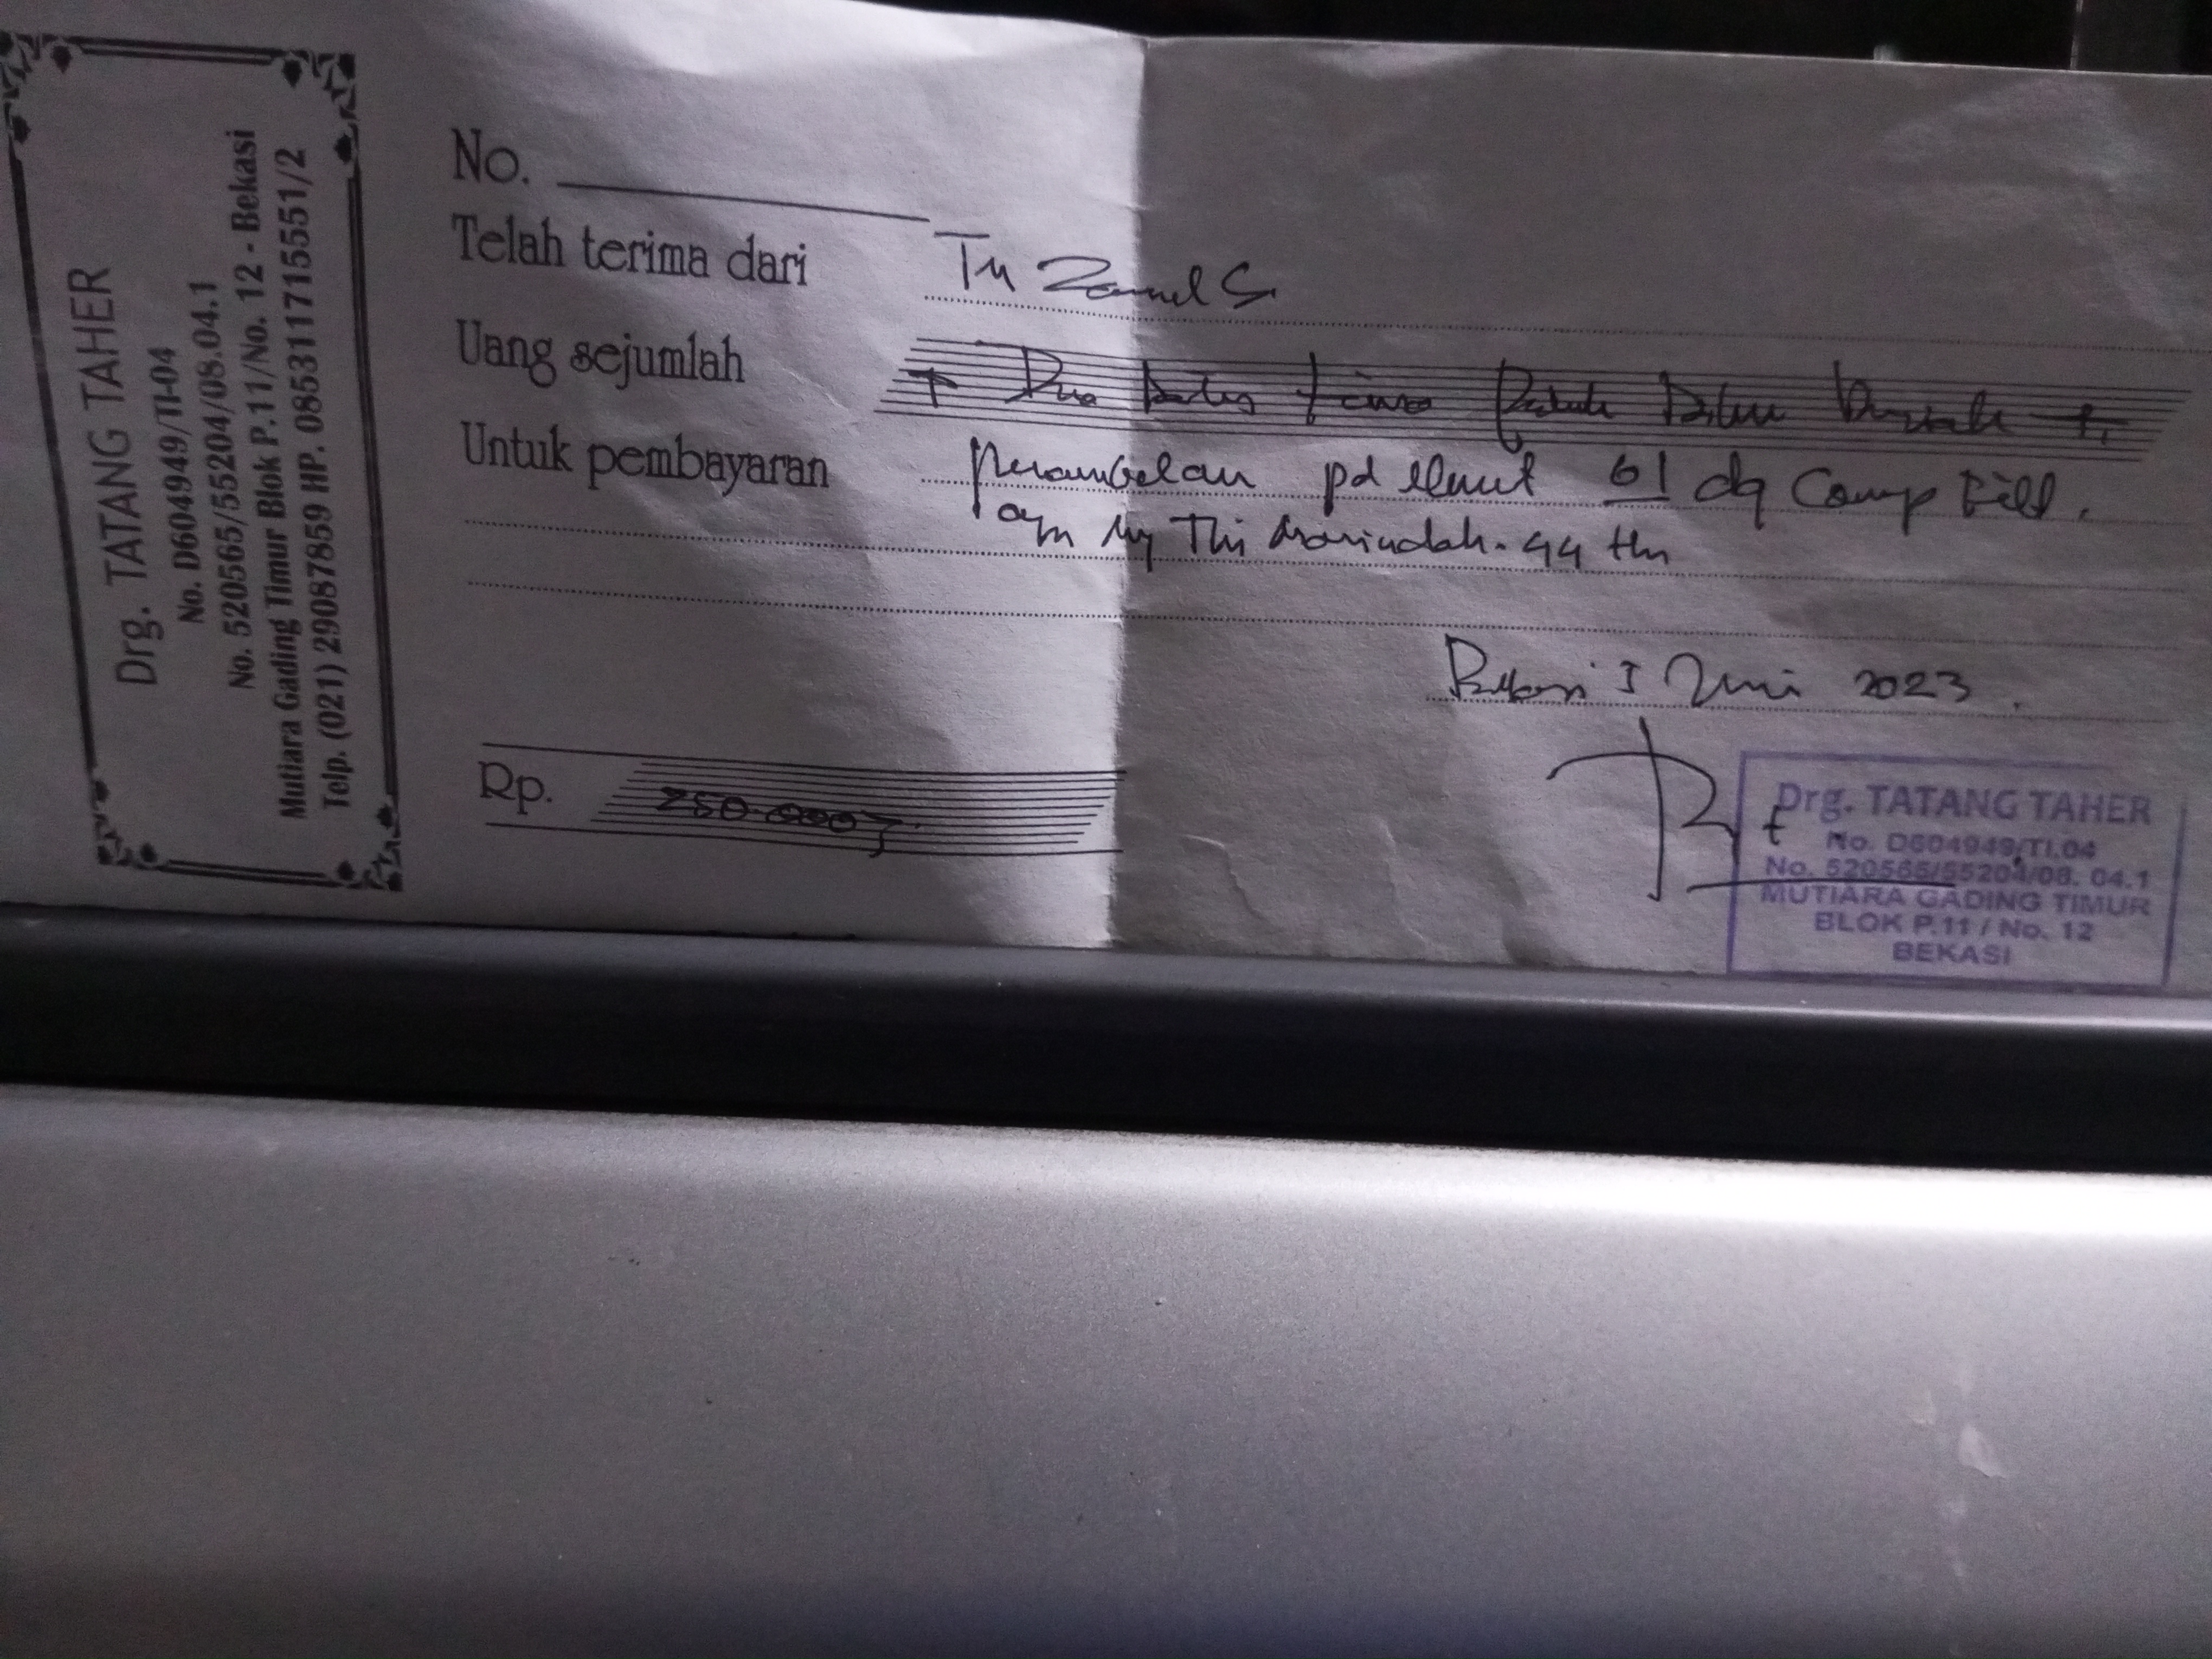 Drg. TATANG TAHER
No. D604949/TI-04
No. 520565/55204/08.04.1
Mutiara Gading Timur Blok P.11/No. 12 - Bekasi
Telp. (021) 29087859 HP. 085311715551/2
No.
Telah terima dari Tn
Uang sejumlah Dua Ratus Lima Puluh Ribu Rupiah
Untuk pembayaran penambalan pd elemt 61 dg Comp Fill.
a/n Ny Thi 44 thn
Bekasi 5 Juni 2023.
Rp. 250.000,-
Drg. TATANG TAHER
No. D604949/TI.04
No. 520565/55204/08. 04.1
MUTIARA GADING TIMUR
BLOK P.11 / No. 12
BEKASI